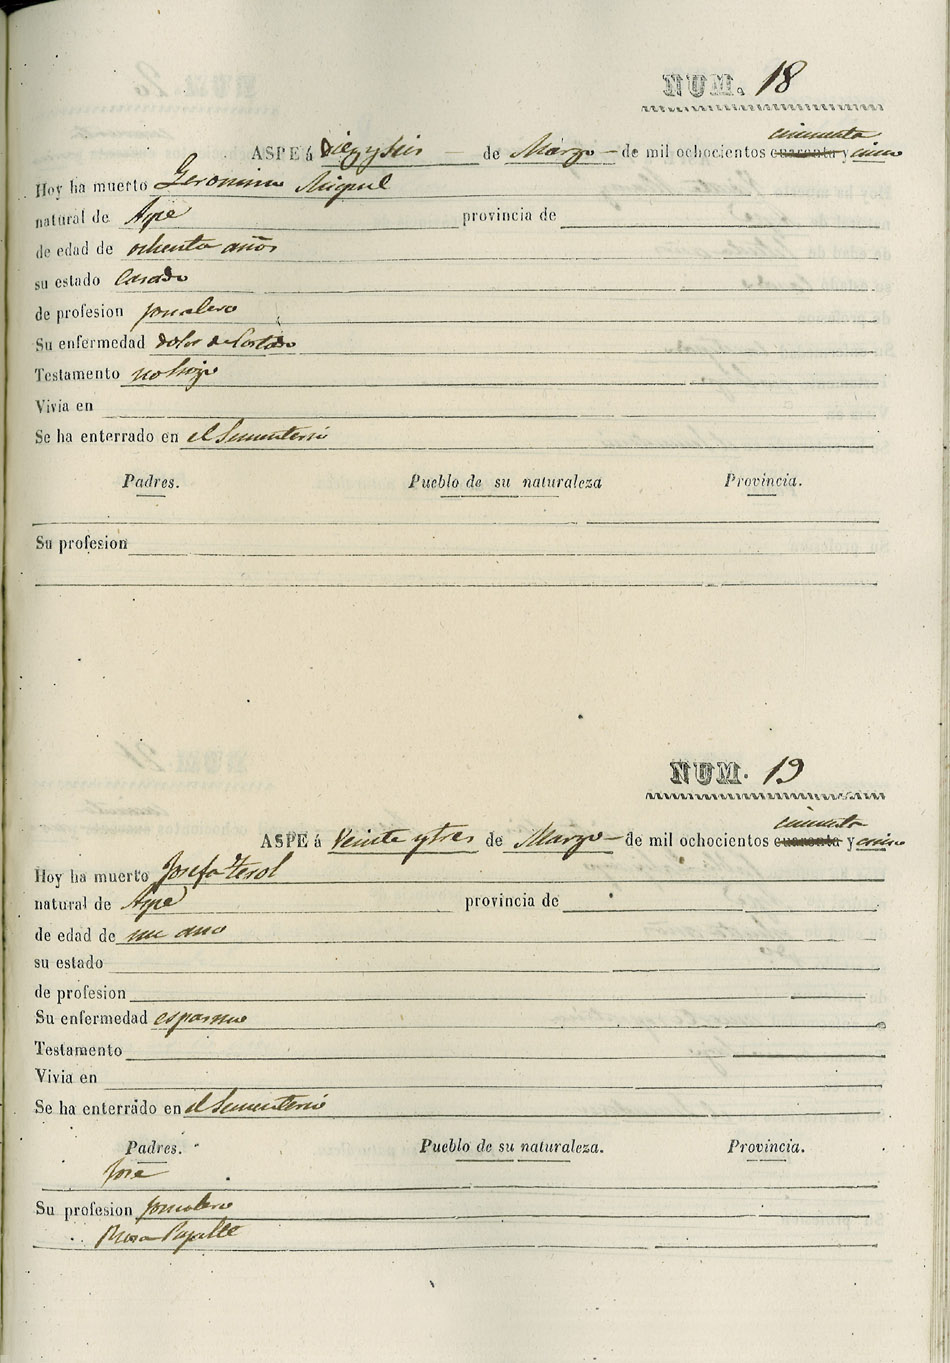 NUM. 18
ASPE á Diez y seis de Marzo de mil ochocientos cuarenta cincuenta y cinco
Hoy ha muerto Geronimo Miquel
natural de Aspe provincia de
de edad de ochenta años
su estado Casado
de profesion jornalero
Su enfermedad dolor de Costado
Testamento no hizo
Vivia en
Se ha enterrado en el Sementerio
Padres. Pueblo de su naturaleza Provincia.
Su profesion
NUM. 19
ASPE á Veinte y tres de Marzo de mil ochocientos cuarenta cincuenta y cinco
Hoy ha muerto Josefa Terol
natural de Aspe provincia de
de edad de un año
su estado
de profesion
Su enfermedad espasmo
Testamento
Vivia en
Se ha enterrado en el Sementerio
Padres. Pueblo de su naturaleza. Provincia.
José
Su profesion jornalero
Rosa